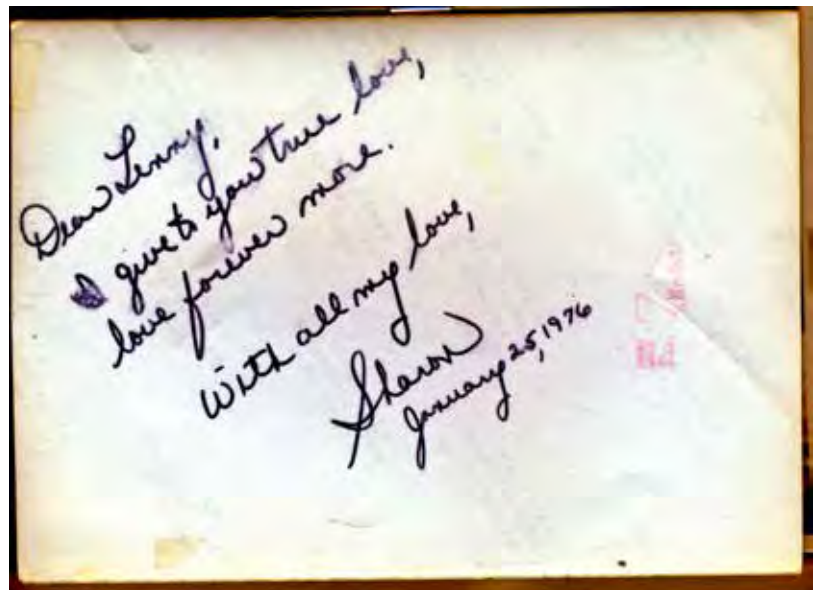 Dear Lenny,
I give to you true love,
love forever more.
With all my love,
Sharon
January 25, 1976